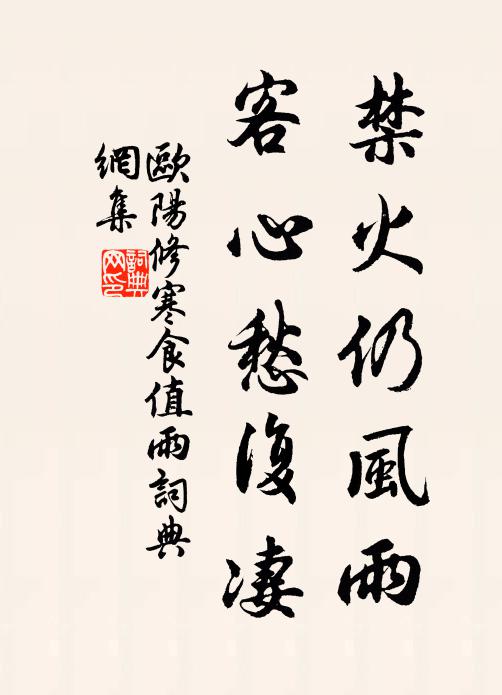 禁火仍風雨
客心愁復凄
歐陽修寒食值雨詞典
網集
詞典
网印